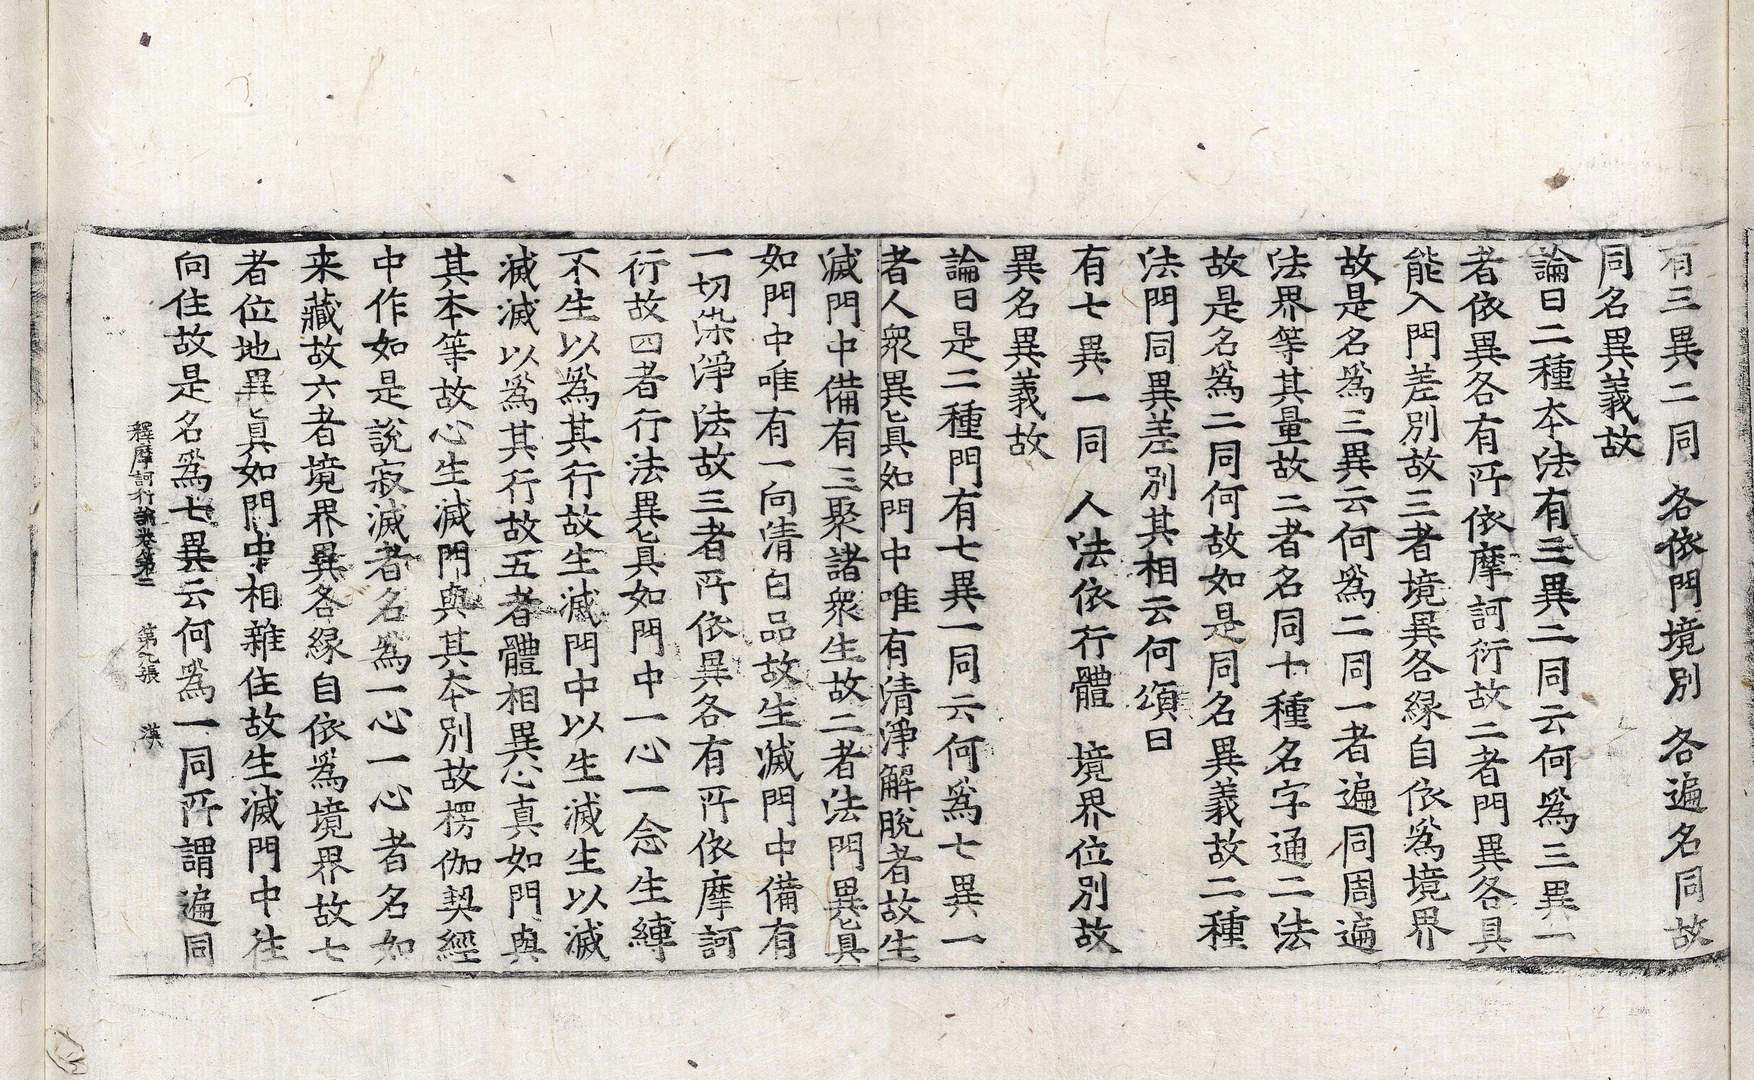 有三異二同 各依門境別 各遍名同故
同名異義故
論曰二種本法有三異二同云何爲三異一
者依異各有所依摩訶衍故二者門異各具
能入門差別故三者境異各緣自依爲境界
故是名爲三異云何爲二同一者遍同周遍
法界等其量故二者名同十種名字通二法
故是名爲二同何故如是同名異義故二種
法門同異差別其相云何頌曰
有七異一同 人法依行體 境界位別故
異名異義故
論曰是二種門有七異一同云何爲七異一
者人衆異眞如門中唯有清淨解脫者故生
滅門中備有三聚諸衆生故二者法門異眞
如門中唯有一向清白品故生滅門中備有
一切染淨法故三者所依異各有所依摩訶
衍故四者行法異眞如門中一心一念生縛
不生以爲其行故生滅門中以生滅生以滅
滅滅以爲其行故五者體相異心真如門與
其本等故心生滅門與其本別故楞伽契經
中作如是說寂滅者名爲一心一心者名如
来藏故六者境界異各緣自依爲境界故七
者位地異眞如門中相雜住故生滅門中往
向住故是名爲七異云何爲一同所謂遍同
釋摩訶衍論卷第二 第九張 漢